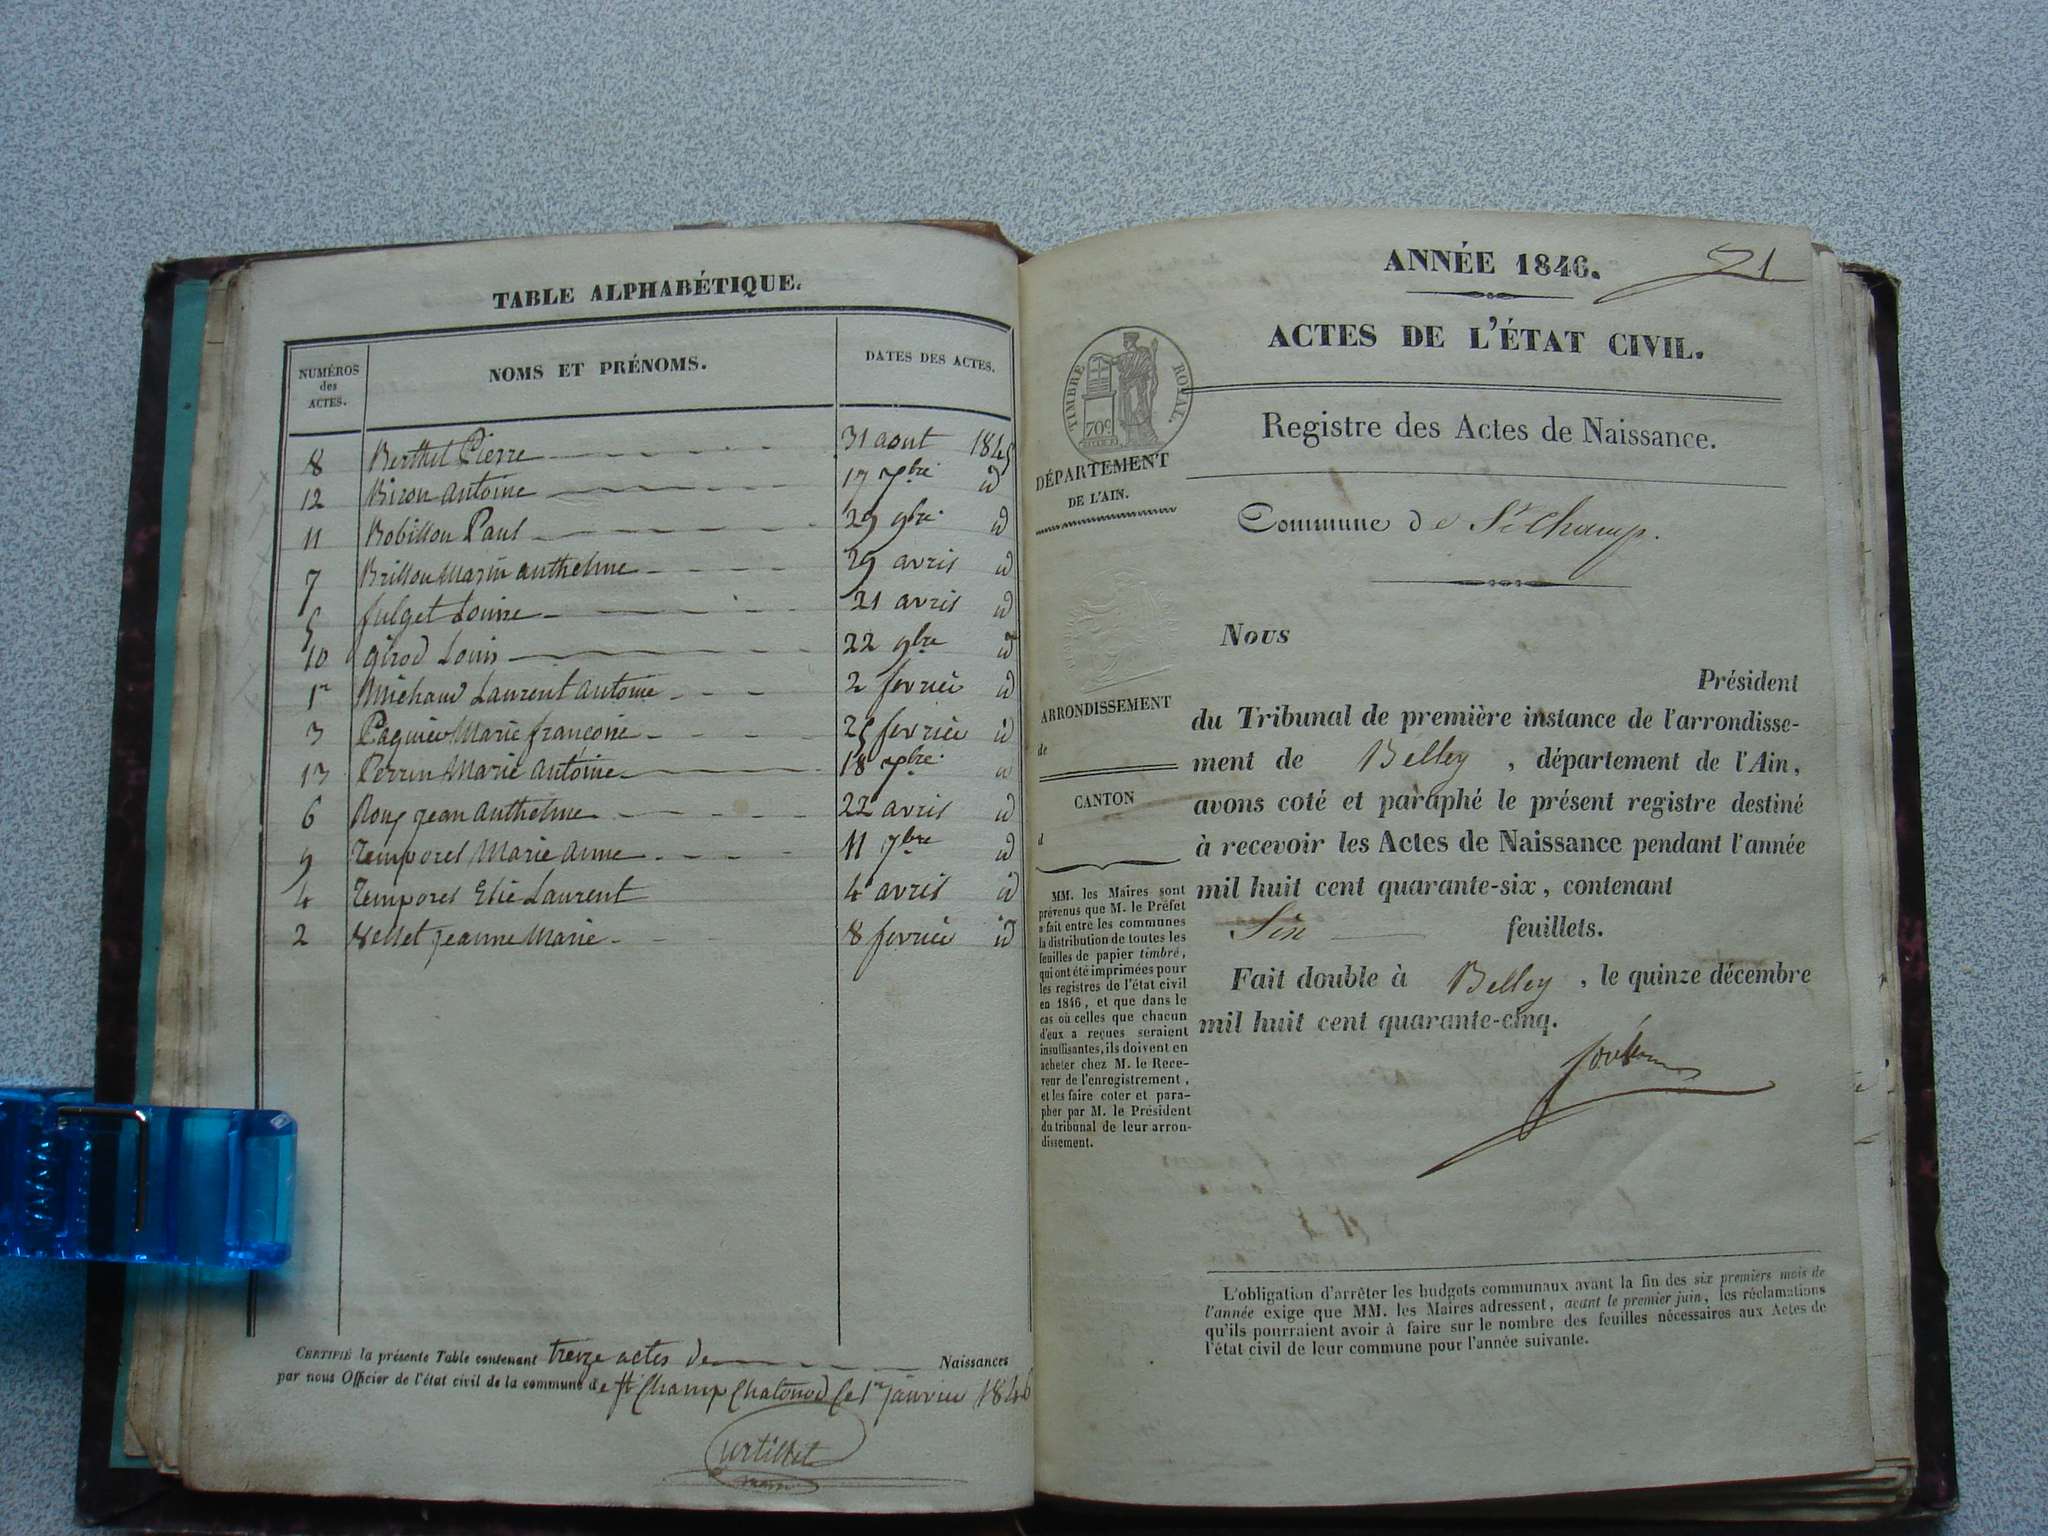 TABLE ALPHABÉTIQUE.
NUMÉROS
des
ACTES.
NOMS ET PRÉNOMS.
DATES DES ACTES.
8 Berthet Pierre 31 aout 1845
12 Biron antoine 17 xbre id
11 Robillon Paul 29 9bre id
7 Brillon Marin anthelme 29 avril id
5 fulget Louise 21 avril id
10 Girod Louis 22 9bre id
1er Michaud Laurent antoine 2 fevrier id
3 Paquier Marie françoise 25 fevrier id
13 Perrin Marie antoine 18 xbre id
6 Roux jean anthelme 22 avril id
9 Temporel Marie anne 11 7bre id
4 Temporel Elie Laurent 4 avril id
2 jeanne Marie 8 fevrier id
CERTIFIÉ la présente Table contenant treize actes de Naissances
par nous Officier de l'état civil de la commune de St Champ Chatonod le 1er janvier 1846
Curtillet
maire
ANNÉE 1846.
21
ACTES DE L'ÉTAT CIVIL.
TIMBRE ROYAL
70c.
Registre des Actes de Naissance.
DÉPARTEMENT
DE L'AIN.
Commune de St Champ.
Nous
Président
du Tribunal de première instance de l'arrondisse-
ment de Belley, département de l'Ain,
avons coté et paraphé le présent registre destiné
à recevoir les Actes de Naissance pendant l'année
mil huit cent quarante-six, contenant
Six feuillets.
Fait double à Belley, le quinze décembre
mil huit cent quarante-cinq.
ARRONDISSEMENT
de
CANTON
d
MM. les Maires sont
prévenus que M. le Préfet
a fait entre les communes
la distribution de toutes les
feuilles de papier timbré,
qui ont été imprimées pour
les registres de l'état civil
en 1846, et que dans le
cas où celles que chacun
d'eux a reçues seraient
insuffisantes, ils doivent en
acheter chez M. le Rece-
veur de l'enregistrement,
et les faire coter et para-
pher par M. le Président
du tribunal de leur arron-
dissement.
L'obligation d'arrêter les budgets communaux avant la fin des six premiers mois de
l'année exige que MM. les Maires adressent, avant le premier juin, les réclamations
qu'ils pourraient avoir à faire sur le nombre des feuilles nécessaires aux Actes de
l'état civil de leur commune pour l'année suivante.